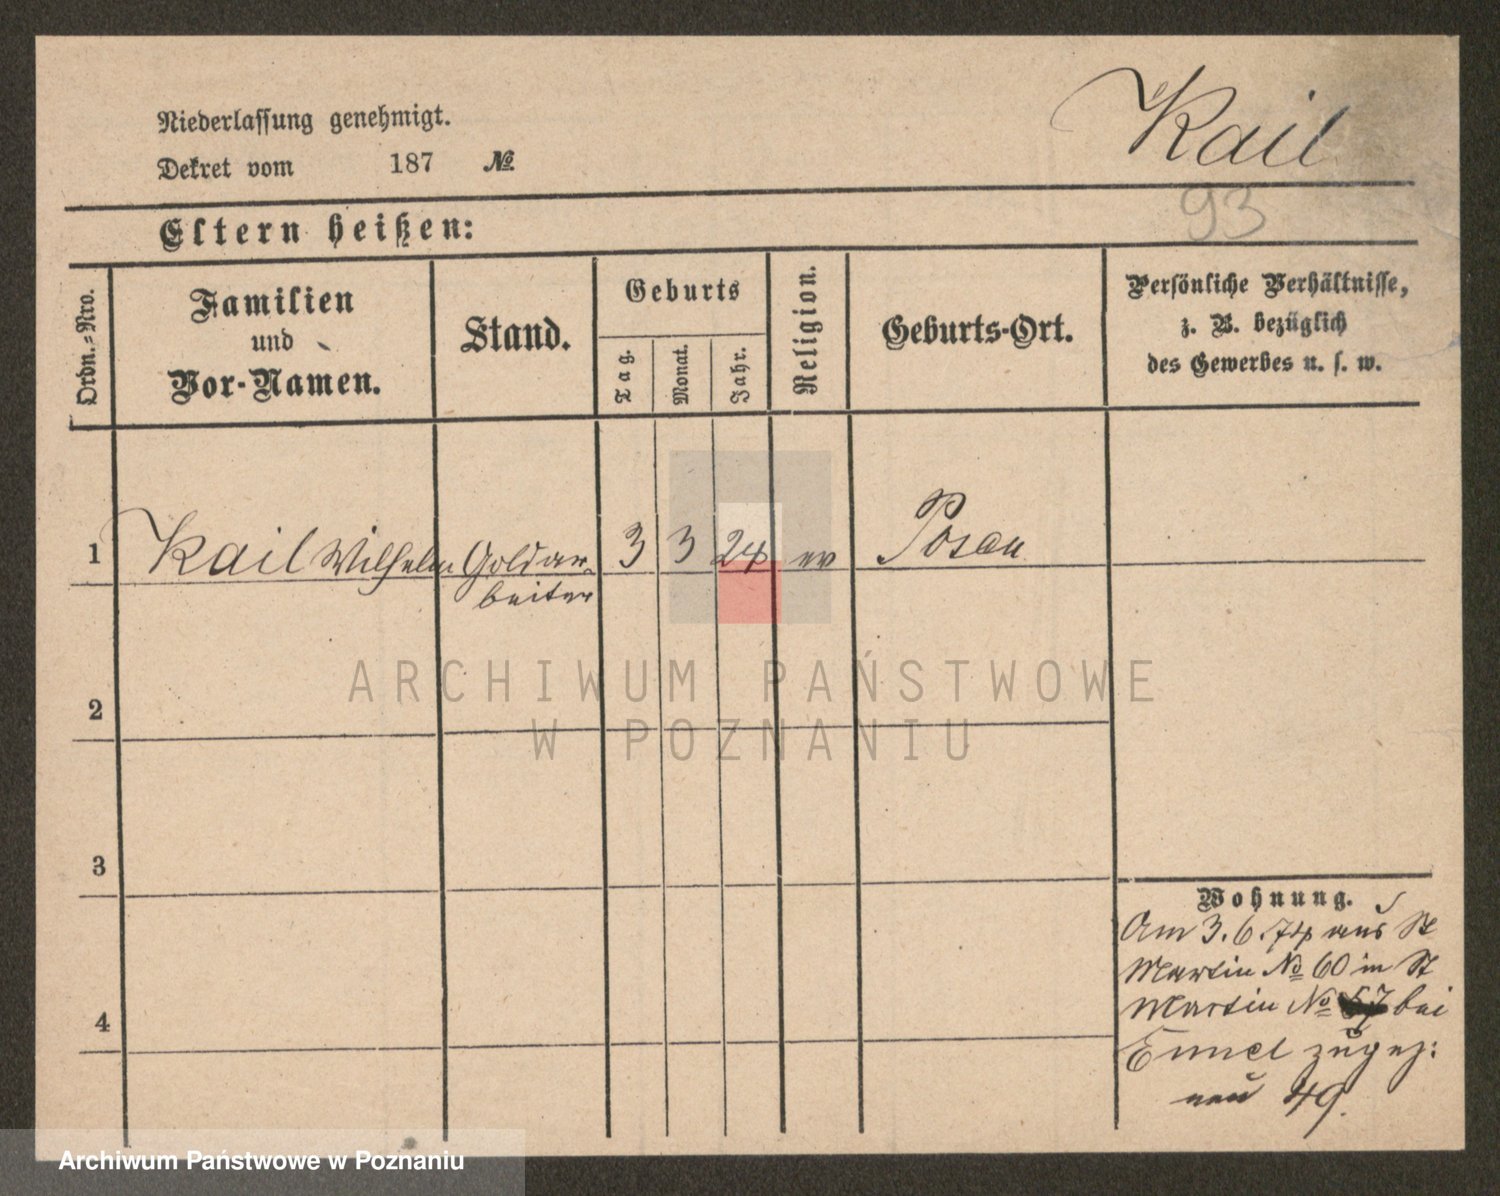 Kail
Niederlassung genehmigt.
Dekret vom 187 №
93
Eltern heißen:
Ordn.-Nro.
Familien
und
Vor-Namen.
Stand.
Geburts
Tag.
Monat.
Jahr.
Religion.
Geburts-Ort.
Persönliche Verhältnisse,
z. B. bezüglich
des Gewerbes u. s. w.
1 Kail Wilhelm Goldar- 3 3 24 ev Posen
beiter
2
3
4
Wohnung.
Am 3.6.74 aus St
Martin № 60 in St
Martin № 57 bei
zugez:
neu 49.
ARCHIWUM PAŃSTWOWE
W POZNANIU
Archiwum Państwowe w Poznaniu